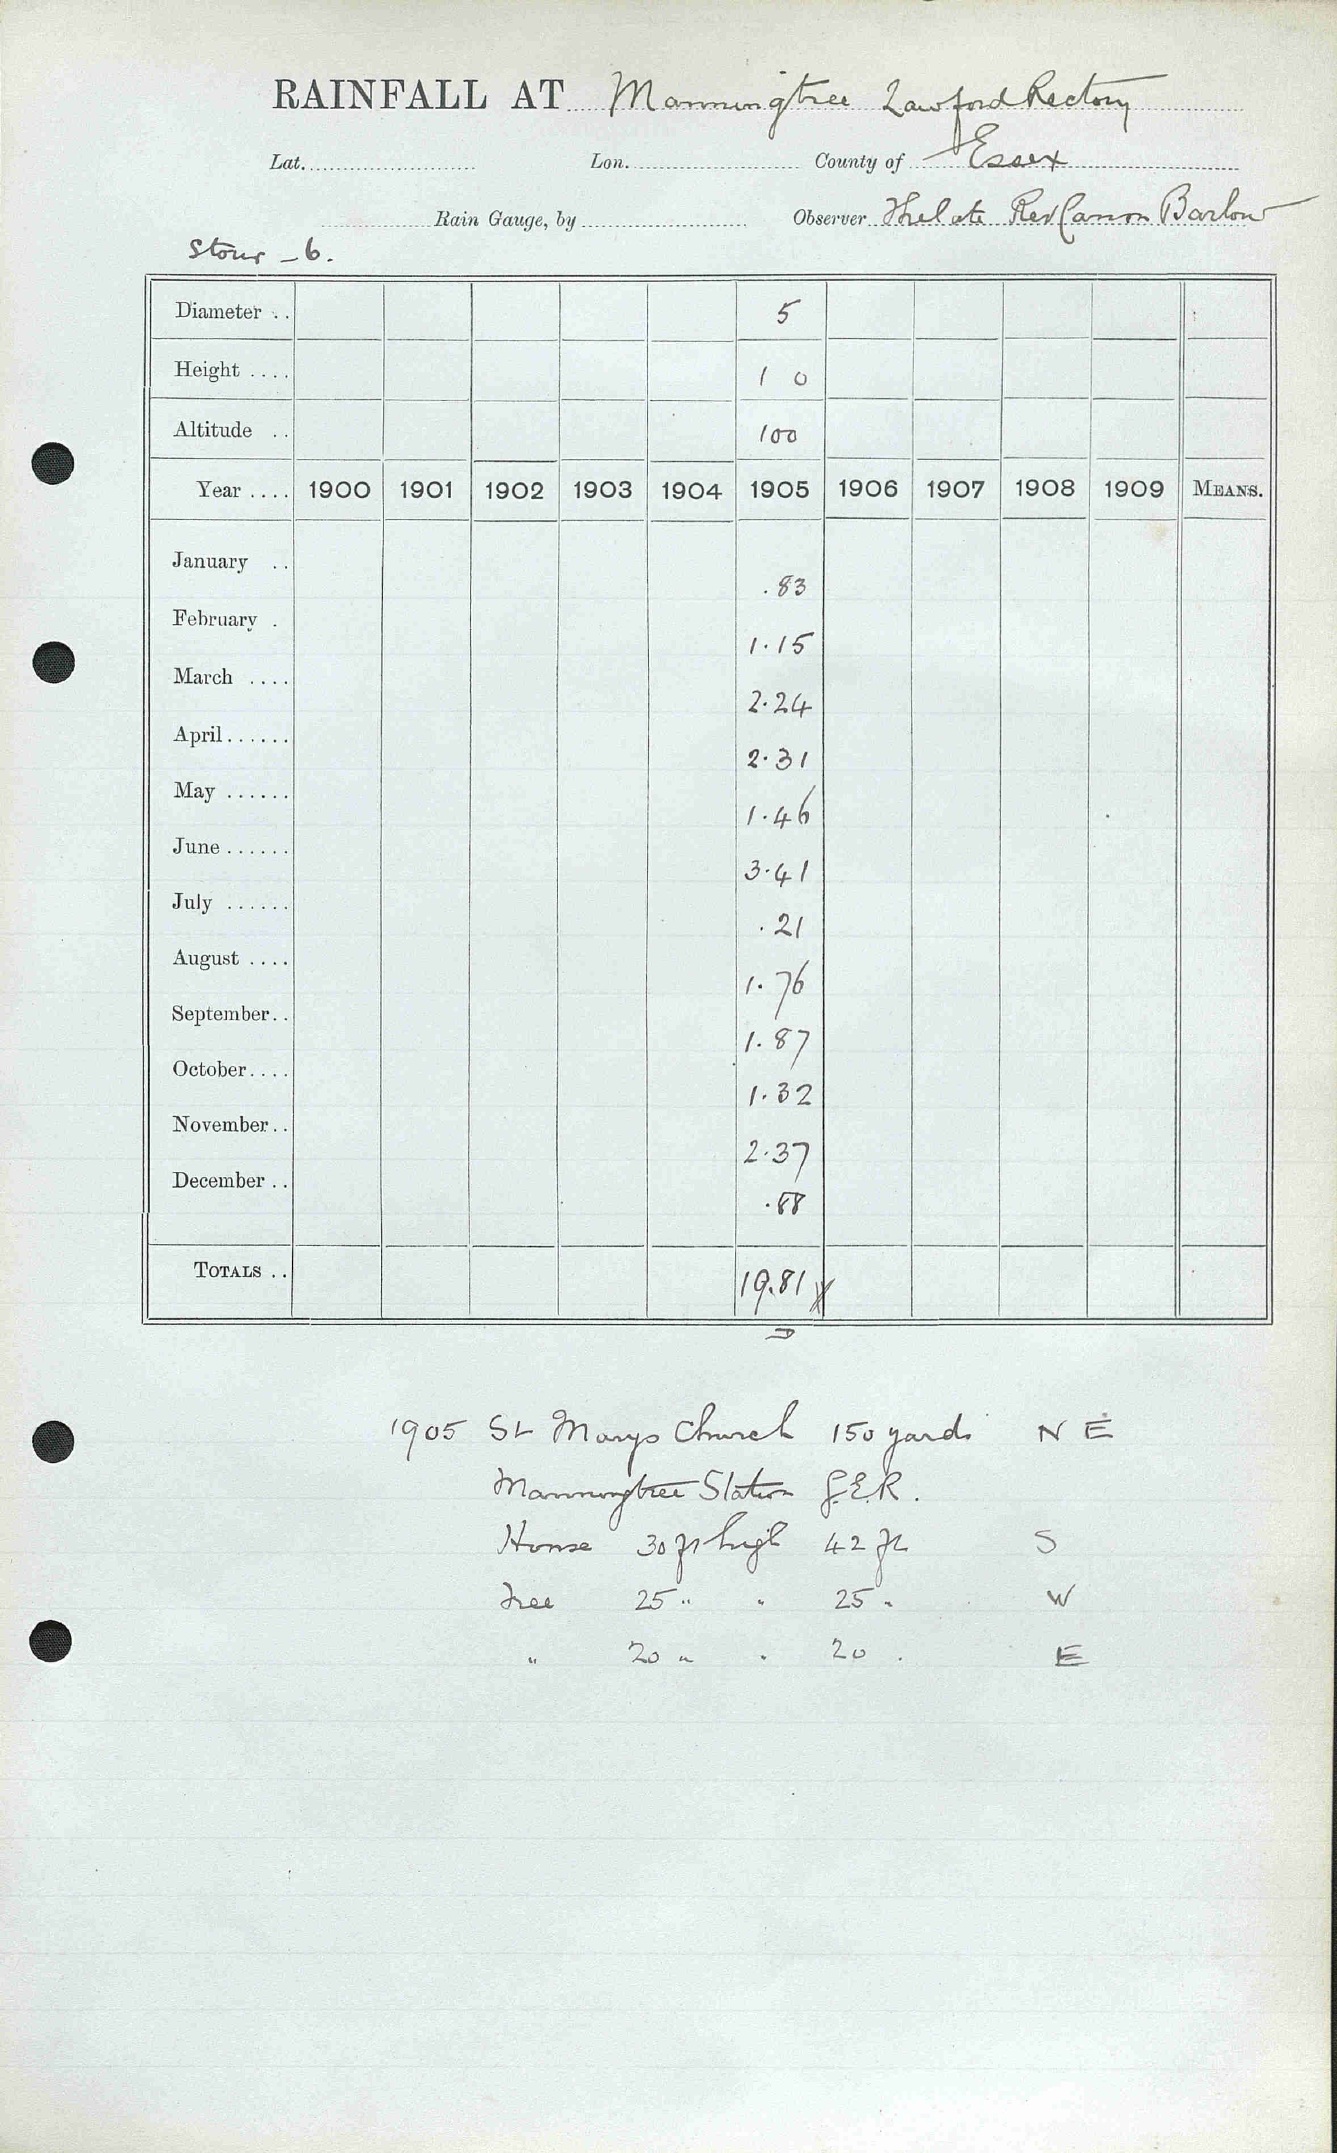 RAINFALL AT Manningtree Lawford Rectory
Lat. Lon. County of Essex
Rain Gauge, by Observer The late Rev Canon Barlow
Stour - 6.
Diameter .. 5
Height .... 1 0
Altitude .. 100
Year .... 1900 1901 1902 1903 1904 1905 1906 1907 1908 1909 MEANS.
January .. .83
February . 1.15
March .... 2.24
April ...... 2.31
May ...... 1.46
June ...... 3.41
July ...... .21
August .... 1.76
September.. 1.87
October.... 1.32
November.. 2.37
December .. .88
TOTALS .. 19.81
1905 St Marys Church 150 yards N E
Manningtree Station G.E.R.
House 30 ft high 42 ft S
Tree 25 " " 25 " W
" 20 " " 20 . E